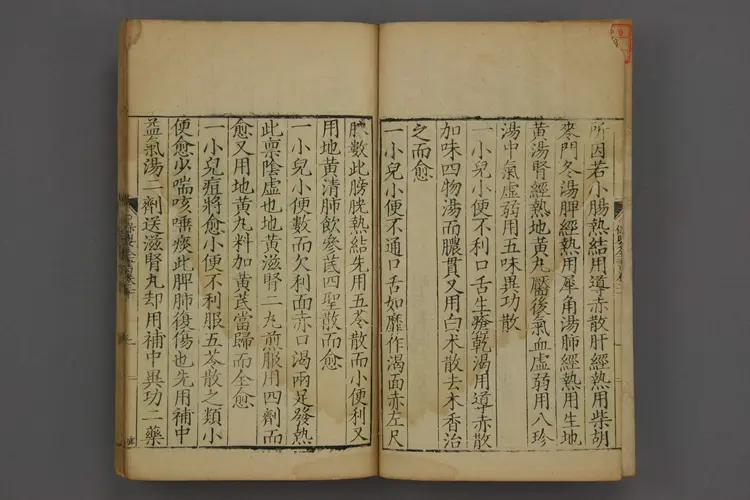 所因若小腸熱結用導赤散肝經熱用柴胡
麥門冬湯脾經熱用犀角湯肺經熱用生地
黃湯腎經熱地黃丸驚後氣血虛弱用八珍
湯中氣虛弱用五味異功散
一小兒小便不利口舌生瘡乾渴用導赤散
加味四物湯而膿貫又用白朮散去木香治
之而愈
一小兒小便不通口舌如靡作渴面赤左尺
脉數此膀胱熱結先用五苓散而小便利又
用地黃清肺飲參芪四聖散而愈
一小兒小便數而欠利面赤口渴兩足發熱
此禀陰虛也地黃滋腎二丸煎服用四劑而
愈又用地黃丸料加黃芪當歸而全愈
一小兒痘將愈小便不利服五苓散之類小
便愈少喘咳唾痰此脾肺復傷也先用補中
益氣湯二劑送滋腎丸却用補中異功二藥